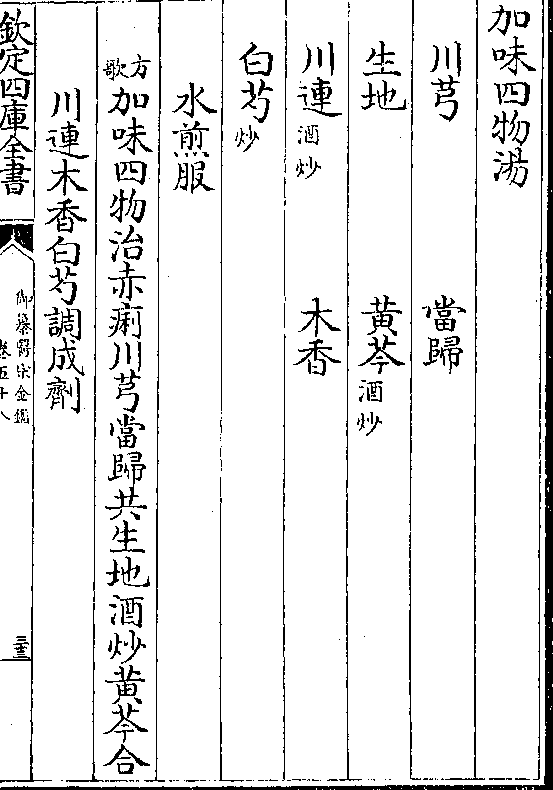 加味四物湯
川芎　當歸
生地　黄芩酒炒
川連酒炒　木香
白芍炒
水煎服
方歌加味四物治赤痢川芎當歸共生地酒炒黄芩合
川連木香白芍調成劑
欽定四庫全書
御纂醫宗金鑑
卷五十八
三十三